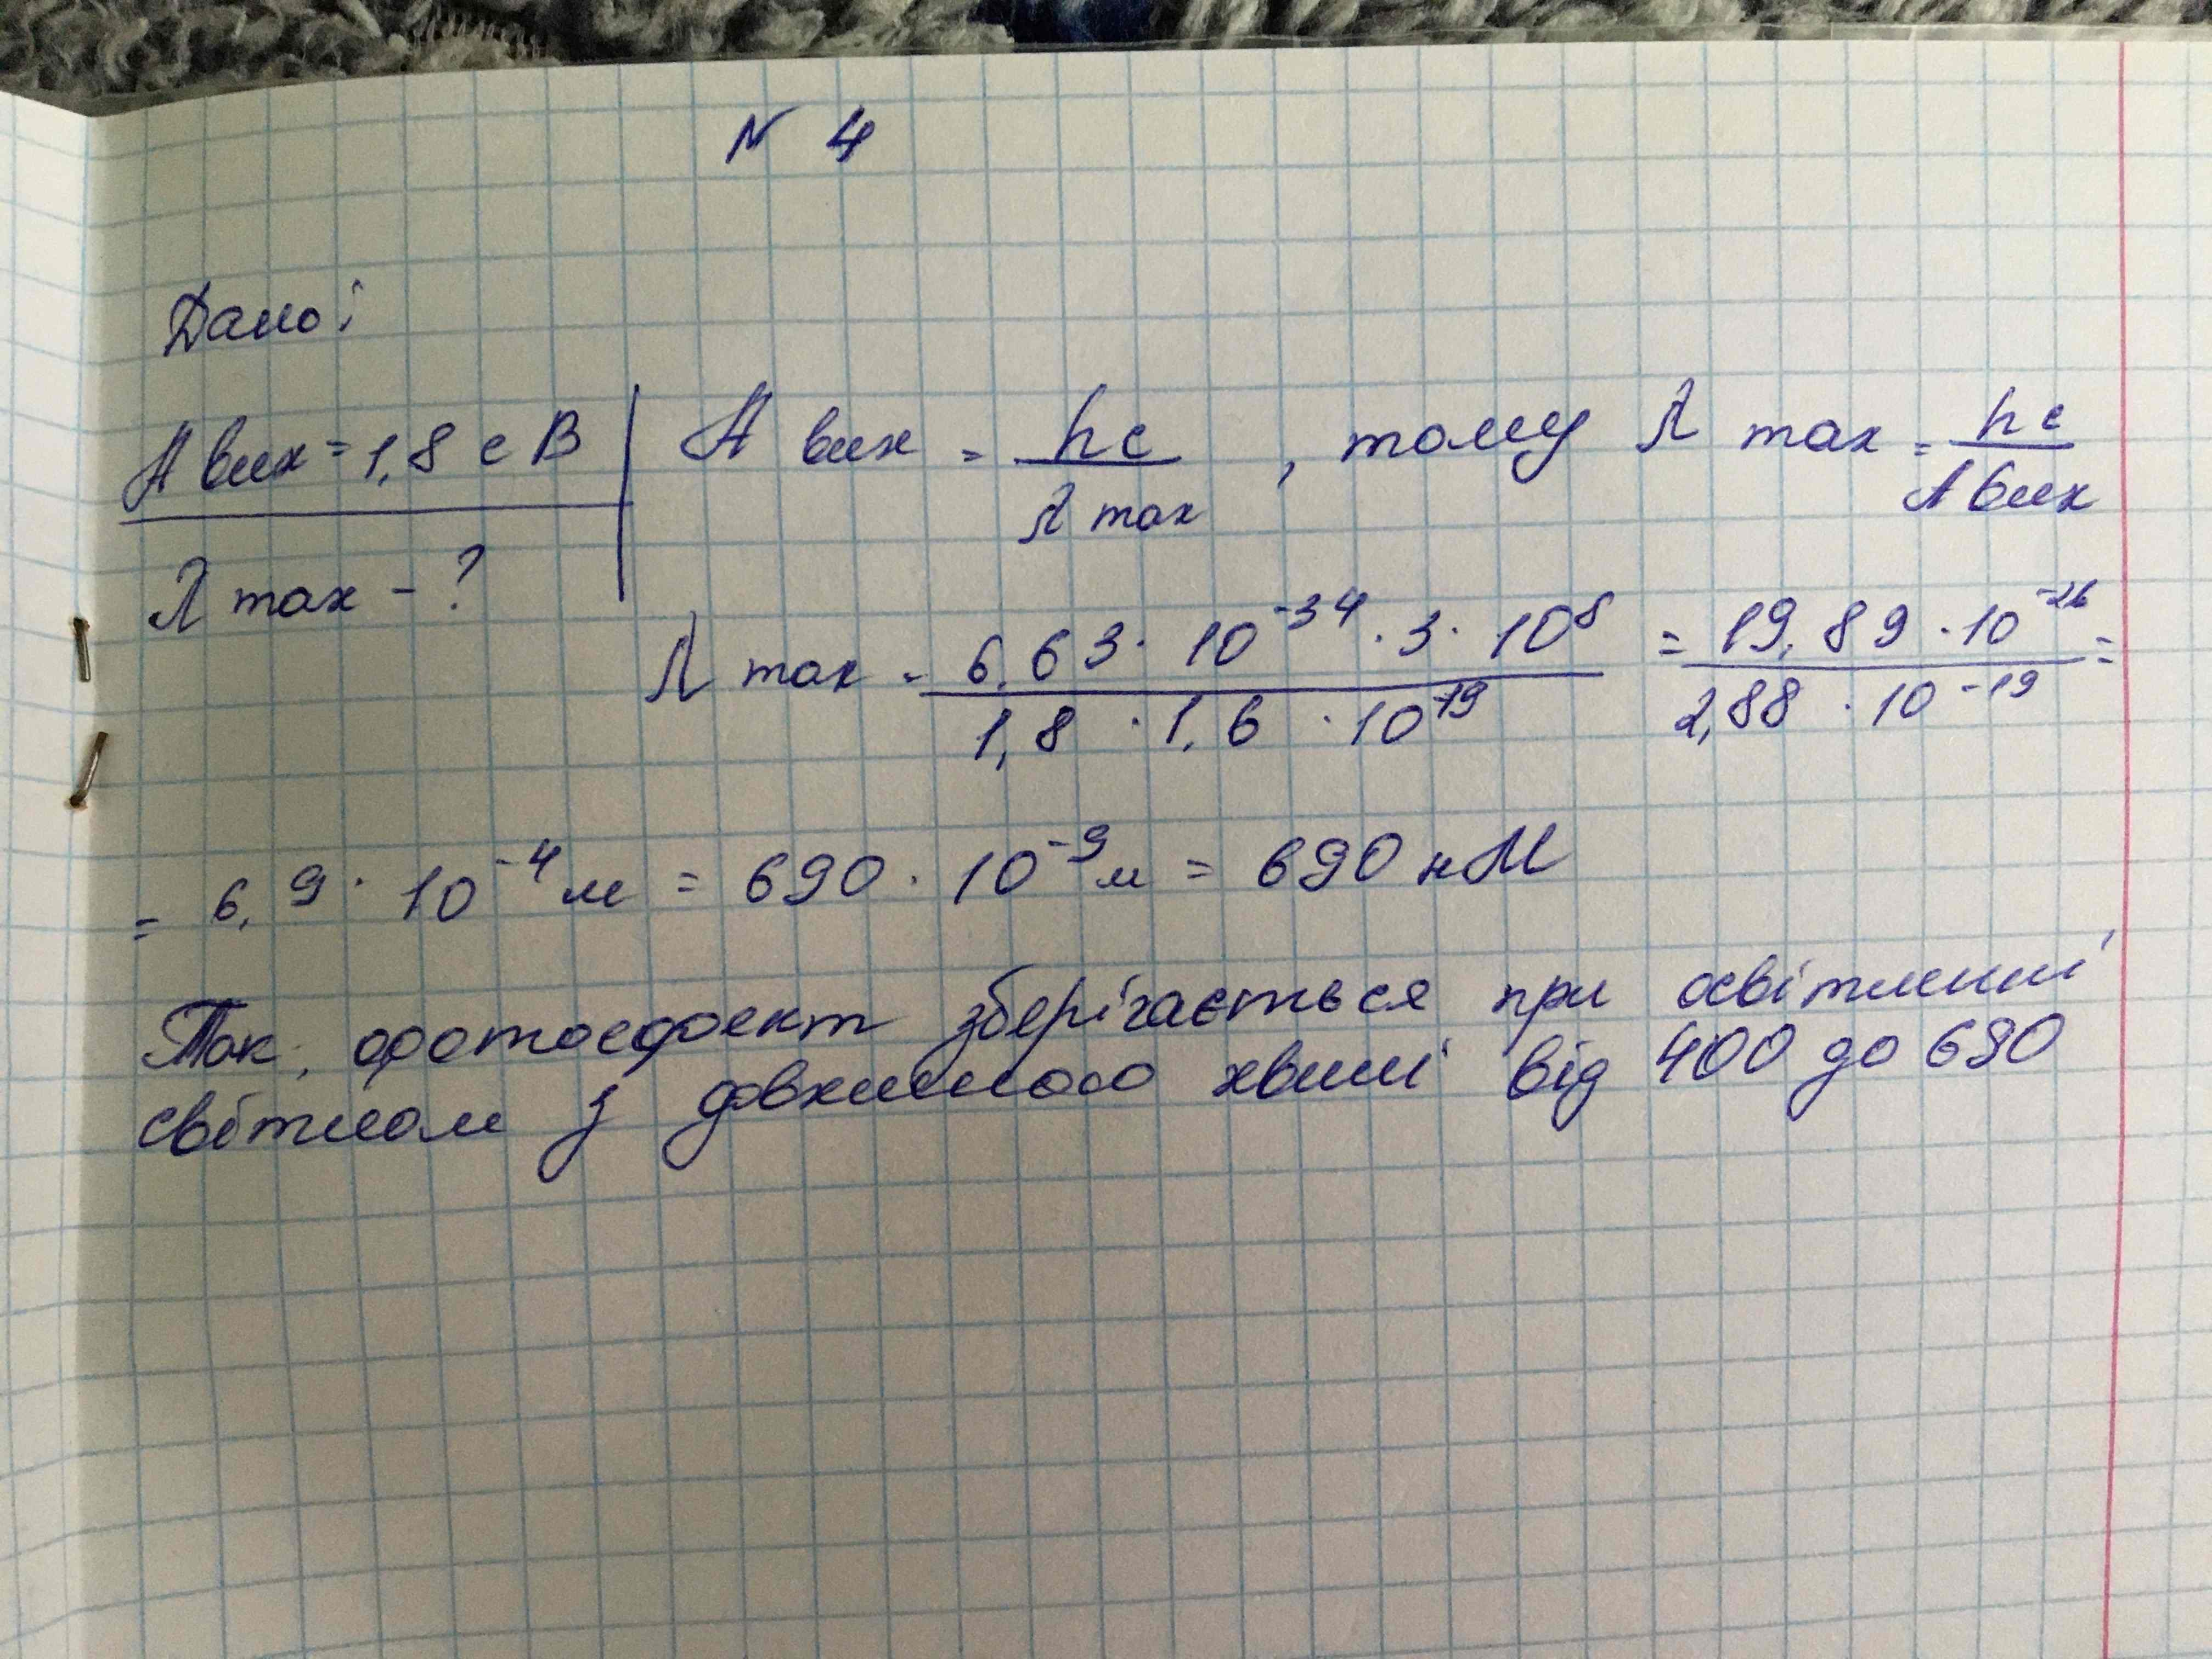 N 4
Дано:
A вих = 1,8 еВ
A вих = hc / λ max , тому λ max = hc / A вих
λ max - ?
λ max = 6,63 · 10⁻³⁴ · 3 · 10⁸ / 1,8 · 1,6 · 10⁻¹⁹ = 19,89 · 10⁻²⁶ / 2,88 · 10⁻¹⁹ =
= 6,9 · 10⁻⁴ м = 690 · 10⁻⁹ м = 690 нМ
Так, фотоефект зберігається при освітленні
світлом з довжиною хвилі від 400 до 690